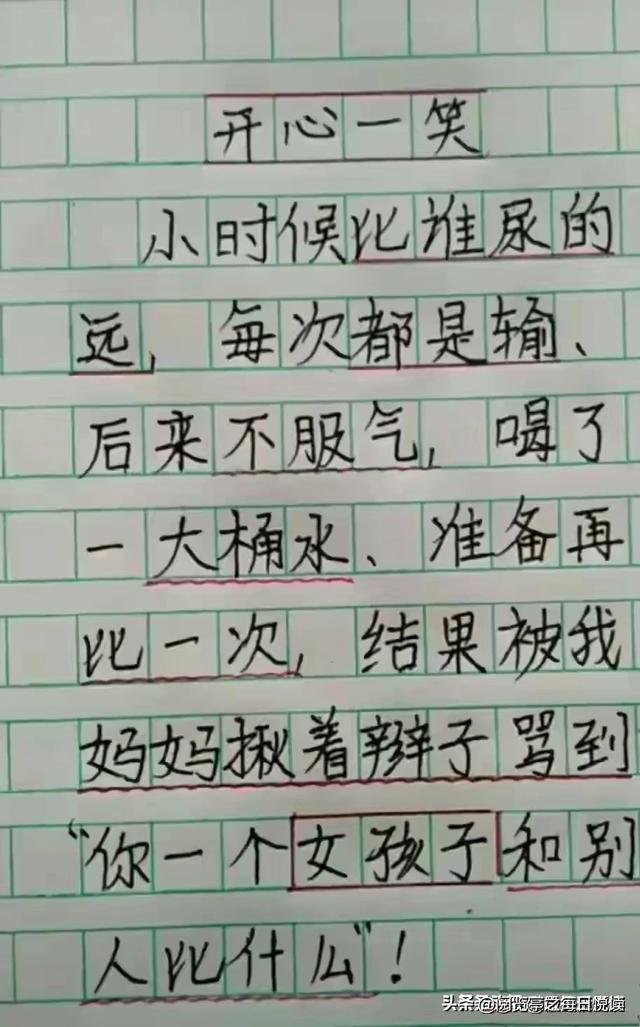 开心一笑
小时候比谁尿的
远，每次都是输、
后来不服气，喝了
一大桶水、准备再
比一次，结果被我
妈妈揪着辫子骂到
“你一个女孩子和别
人比什么”！
头条
每日悦读